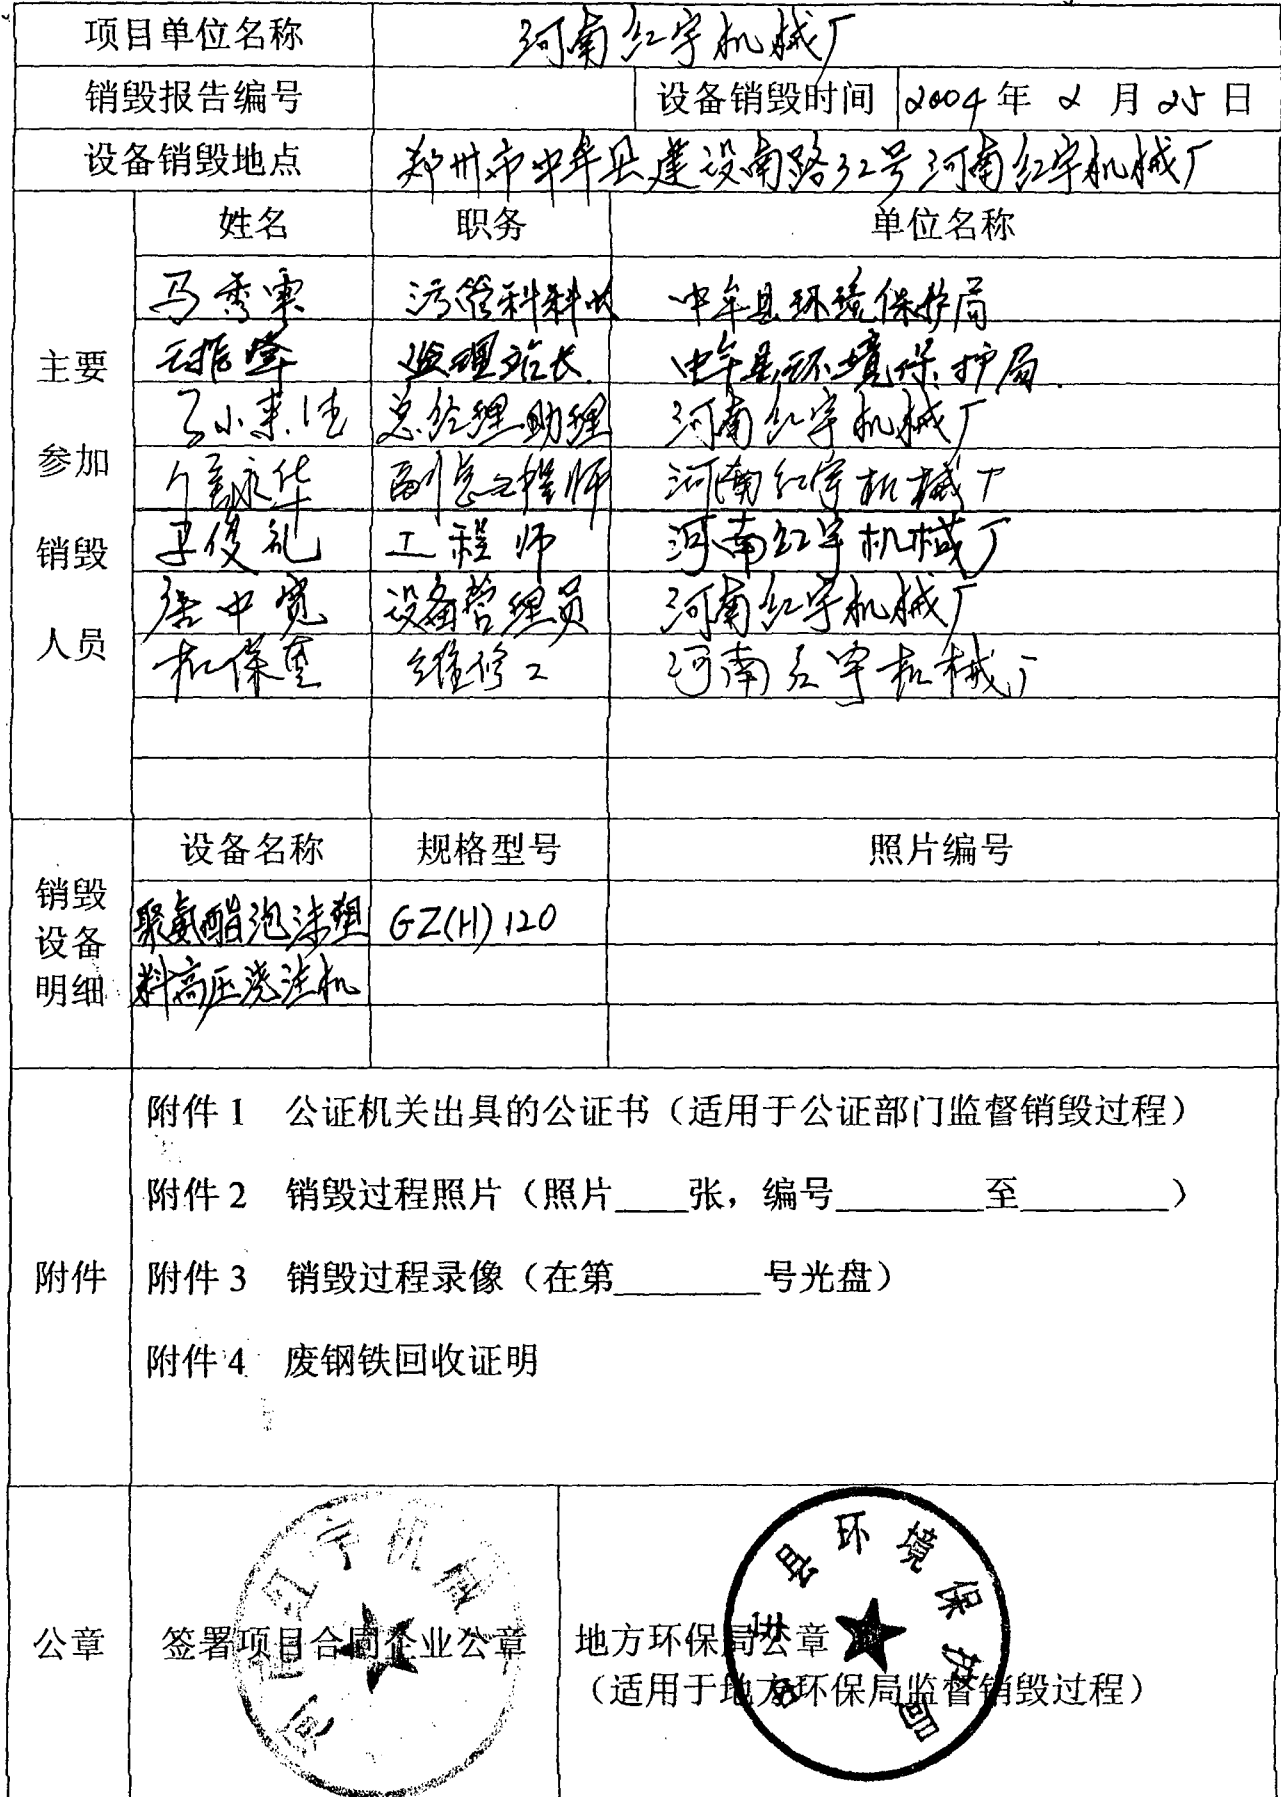 项目单位名称 河南红宇机械厂
销毁报告编号 设备销毁时间 2004年 2 月 25 日
设备销毁地点 郑州市中牟县建设南路32号河南红宇机械厂
姓名 职务 单位名称
马秀 污管科科长 中牟县环境保护局
监理站长 中牟县环境保护局
总经理助理 河南红宇机械厂
永华 副总工程师 河南红宇机械厂
俊礼 工程师 河南红宇机械厂
中宽 设备管理员 河南红宇机械厂
保 维修工 河南红宇机械厂
主要
参加
销毁
人员
设备名称 规格型号 照片编号
聚氨酯泡沫塑 GZ(H)120
料高压浇注机
销毁
设备
明细
附件 1 公证机关出具的公证书（适用于公证部门监督销毁过程）
附件 2 销毁过程照片（照片____张，编号________至________）
附件
附件 3 销毁过程录像（在第________号光盘）
附件 4 废钢铁回收证明
公章 签署项目合同企业公章
地方环保局公章
（适用于地方环保局监督销毁过程）
河南红宇机械厂
中牟县环境保护局